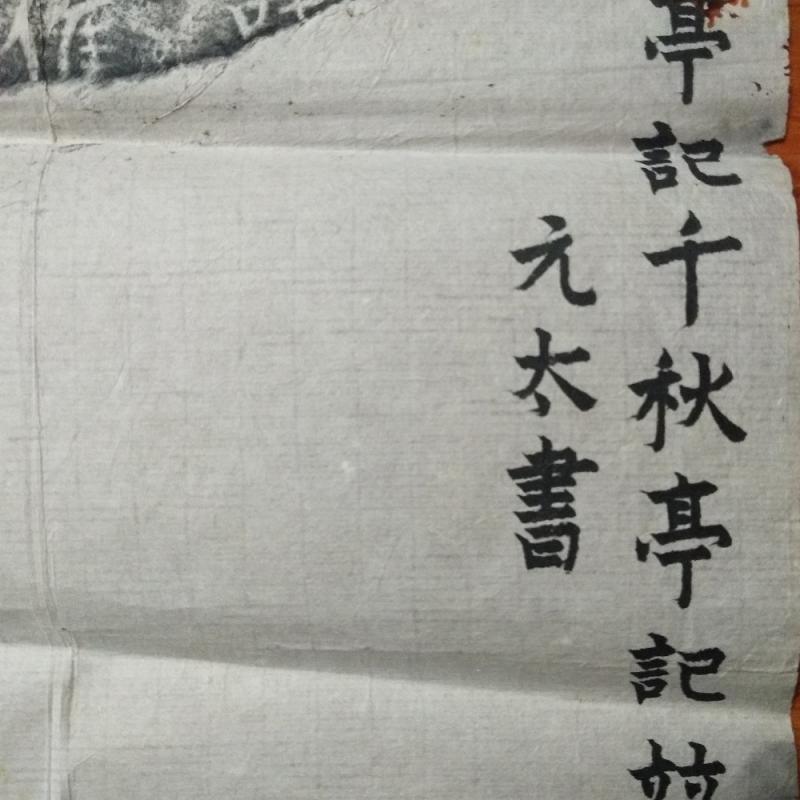 亭記千秋亭記並
元太書